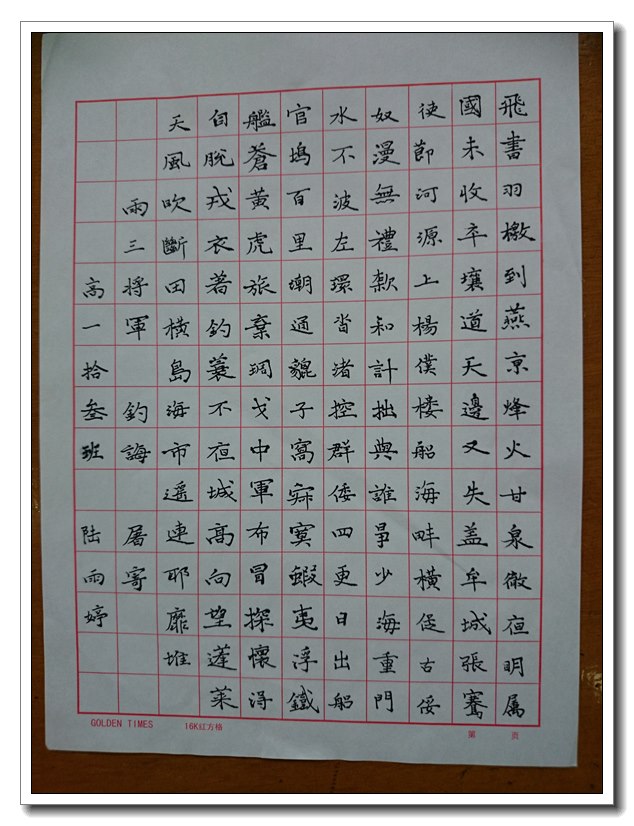 飛書羽檄到燕京烽火甘泉徹夜明属
國未收卒壤道天邊又失盖牟城張騫
使節河源上楊僕楼船海畔橫促古倭
奴漫無禮欵和計拙與誰爭少海重門
水不波左環沓渚控群倭四更日出船
官塢百里潮通貔子窩寂寞蝦夷浮鐵
艦蒼黃虎旅棄琱戈中軍布冒探懷淂
自脫戎衣著釣蓑不夜城高向望蓬萊
天風吹斷田橫島海市遥連耶靡堆
雨三將軍 釣誨 屠寄
高一拾叄班 陆雨婷
GOLDEN TIMES 16K红方格 第 页